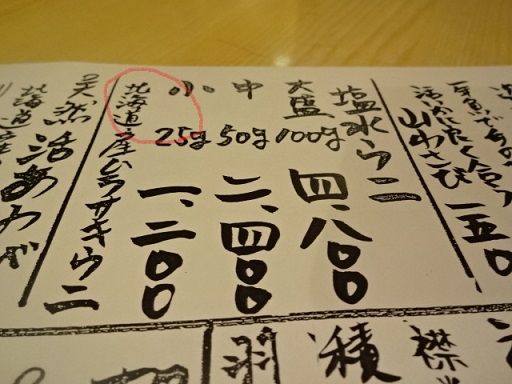 活いかに良く合う
山わさび 一五〇
塩水ウニ
大盛 100g 四、八〇〇
中 50g 二、四〇〇
小 25g 一、二〇〇
北海道産ムラサキウニ
天然活あわび
北海道産
襟
積
羽